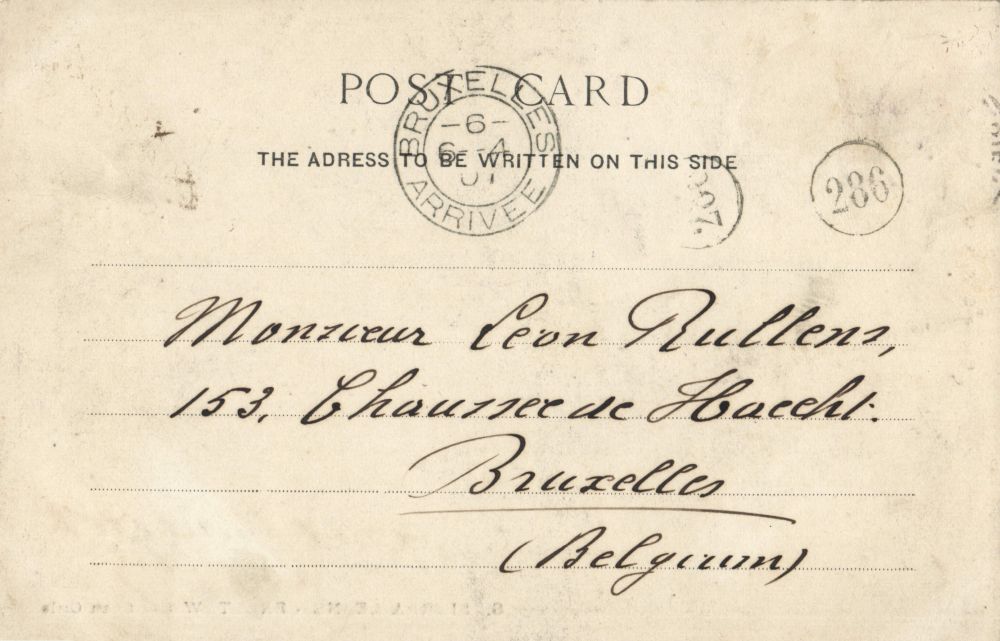 POST CARD
BRUXELLES
-6-
6-4
07
ARRIVEE
THE ADRESS TO BE WRITTEN ON THIS SIDE
907.
286
Monsieur Léon Rullens,
153, Chaussee de Haecht.
Bruxelles
(Belgium)